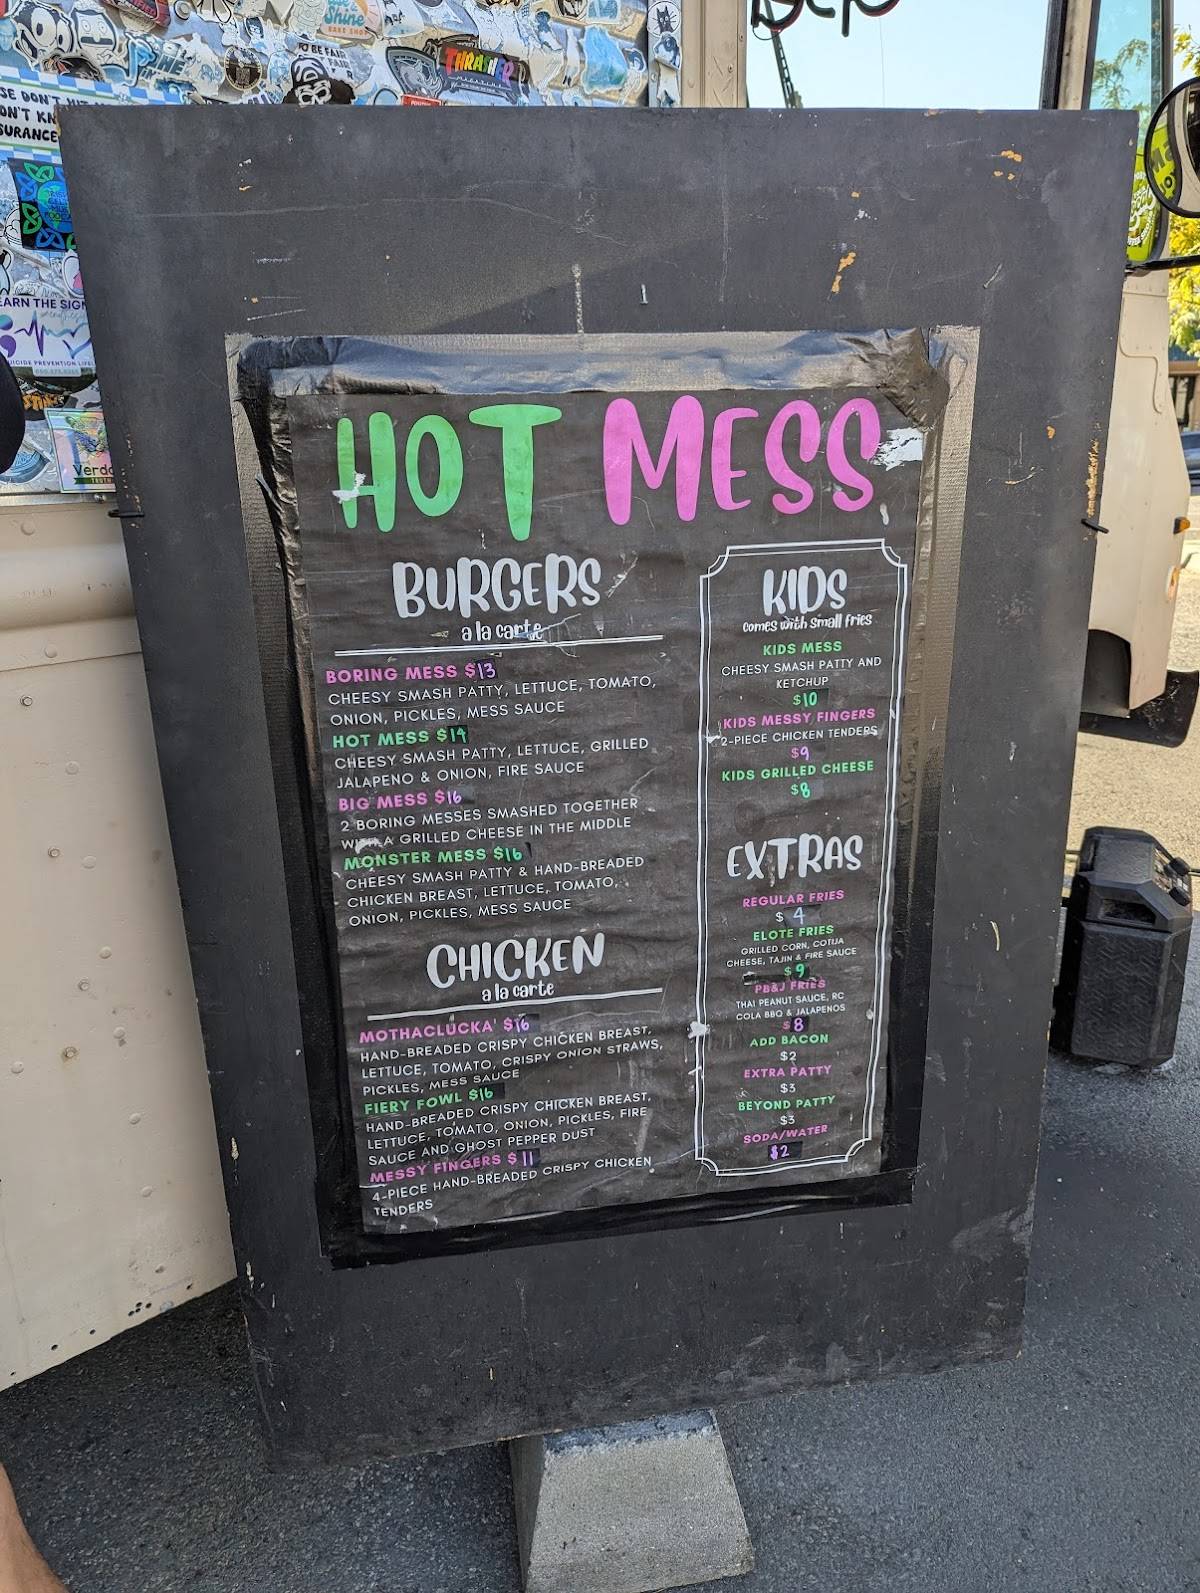 Shine
BAKE SHOP
TO BE FAIR
THRASHER
MAGAZINE
SURANCE
EARN THE SIGN
SUICIDE PREVENTION LIFEL
HOT MESS
BURGERS
a la carte
BORING MESS $13
CHEESY SMASH PATTY, LETTUCE, TOMATO,
ONION, PICKLES, MESS SAUCE
HOT MESS $14
CHEESY SMASH PATTY, LETTUCE, GRILLED
JALAPENO & ONION, FIRE SAUCE
BIG MESS $16
2 BORING MESSES SMASHED TOGETHER
WITH A GRILLED CHEESE IN THE MIDDLE
MONSTER MESS $16
CHEESY SMASH PATTY & HAND-BREADED
CHICKEN BREAST, LETTUCE, TOMATO,
ONION, PICKLES, MESS SAUCE
CHICKEN
a la carte
MOTHACLUCKA' $16
HAND-BREADED CRISPY CHICKEN BREAST,
LETTUCE, TOMATO, CRISPY ONION STRAWS,
PICKLES, MESS SAUCE
FIERY FOWL $16
HAND-BREADED CRISPY CHICKEN BREAST,
LETTUCE, TOMATO, ONION, PICKLES, FIRE
SAUCE AND GHOST PEPPER DUST
MESSY FINGERS $11
4-PIECE HAND-BREADED CRISPY CHICKEN
TENDERS
KIDS
comes with small fries
KIDS MESS
CHEESY SMASH PATTY AND
KETCHUP
$10
KIDS MESSY FINGERS
2-PIECE CHICKEN TENDERS
$9
KIDS GRILLED CHEESE
$8
EXTRAS
REGULAR FRIES
$ 4
ELOTE FRIES
GRILLED CORN, COTIJA
CHEESE, TAJIN & FIRE SAUCE
$9
PB&J FRIES
THAI PEANUT SAUCE, RC
COLA BBQ & JALAPENOS
$8
ADD BACON
$2
EXTRA PATTY
$3
BEYOND PATTY
$3
SODA/WATER
$2